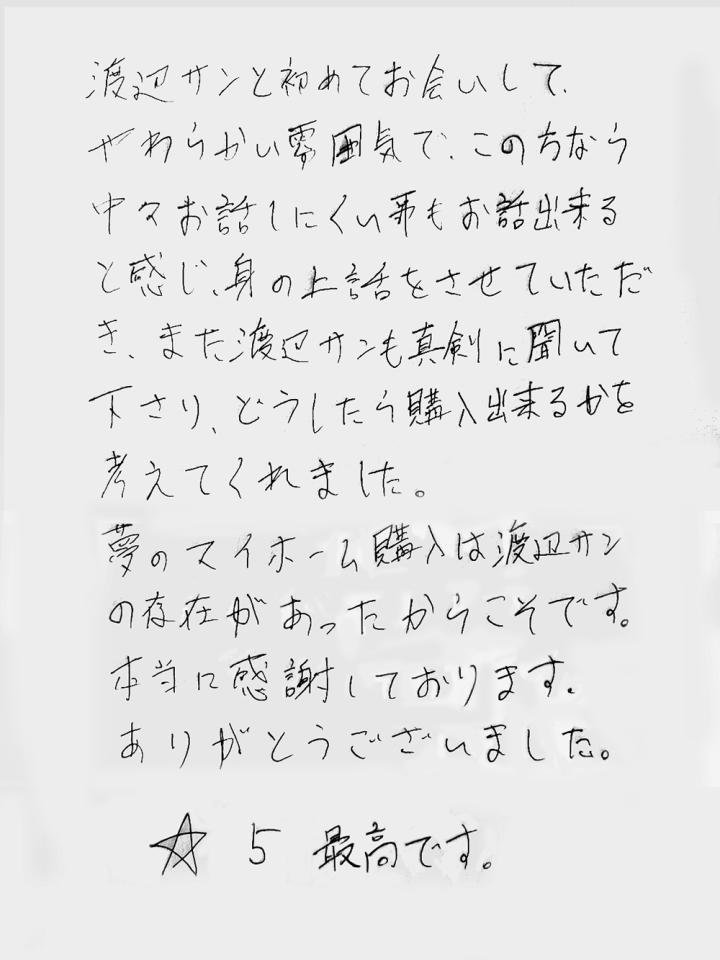 渡辺サンと初めてお会いして、
やわらかい雰囲気で、この方なら
中々お話しにくい事もお話出来る
と感じ、身の上話をさせていただ
き、また渡辺サンも真剣に聞いて
下さり、どうしたら購入出来るかを
考えてくれました。
夢のマイホーム購入は渡辺サン
の存在があったからこそです。
本当に感謝しております。
ありがとうございました。
☆ 5 最高です。